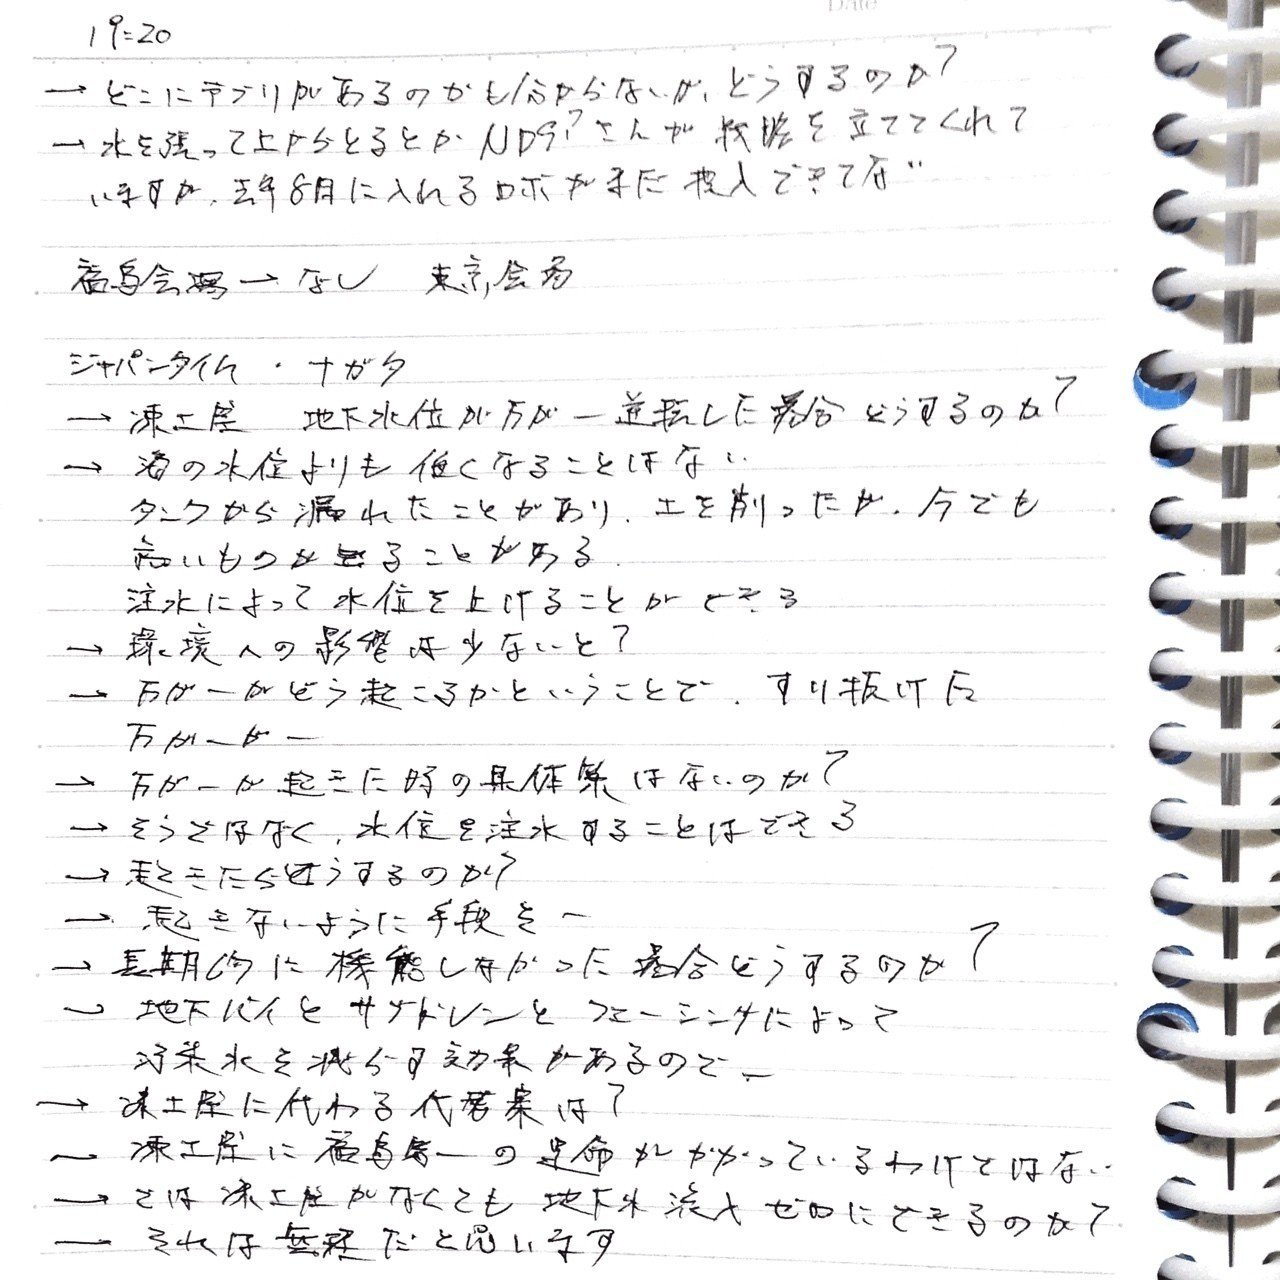 Date
19:20
→ どこにデブリがあるのかも分からないが、どうするのか?
→ 水を張って上からとるとか さんが 戦略を立ててくれて
いますが、去年8月に入れるロボがまだ投入できてない
福島会場→なし 東京会場
ジャパンタイム・ナガタ
→ 凍土壁 地下水位が万が一逆転した場合どうするのか?
→ 海の水位よりも低くなることはない
タンクから漏れたことがあり、土を削ったが、今でも
高いものが出ることがある
注水によって水位を上げることができる
→ 環境への影響は少ないと?
→ 万が一がどう起こるかということで、すり抜けた
万が一が一
→ 万が一が起きた時の具体策はないのか?
→ そうではなく、水位を注水することはできる
→ 起きたらどうするのか?
→ 起きないように手段を―
→ 長期的に機能しなかった場合どうするのか?
→ 地下バイとサブドレンとフェーシングによって
汚染水を減らす効果があるので―
→ 凍土壁に代わる代替案は?
→ 凍土壁に福島第一の運命がかかっているわけではない
→ では凍土壁がなくても地下水流入ゼロにできるのか?
→ それは無理だと思います